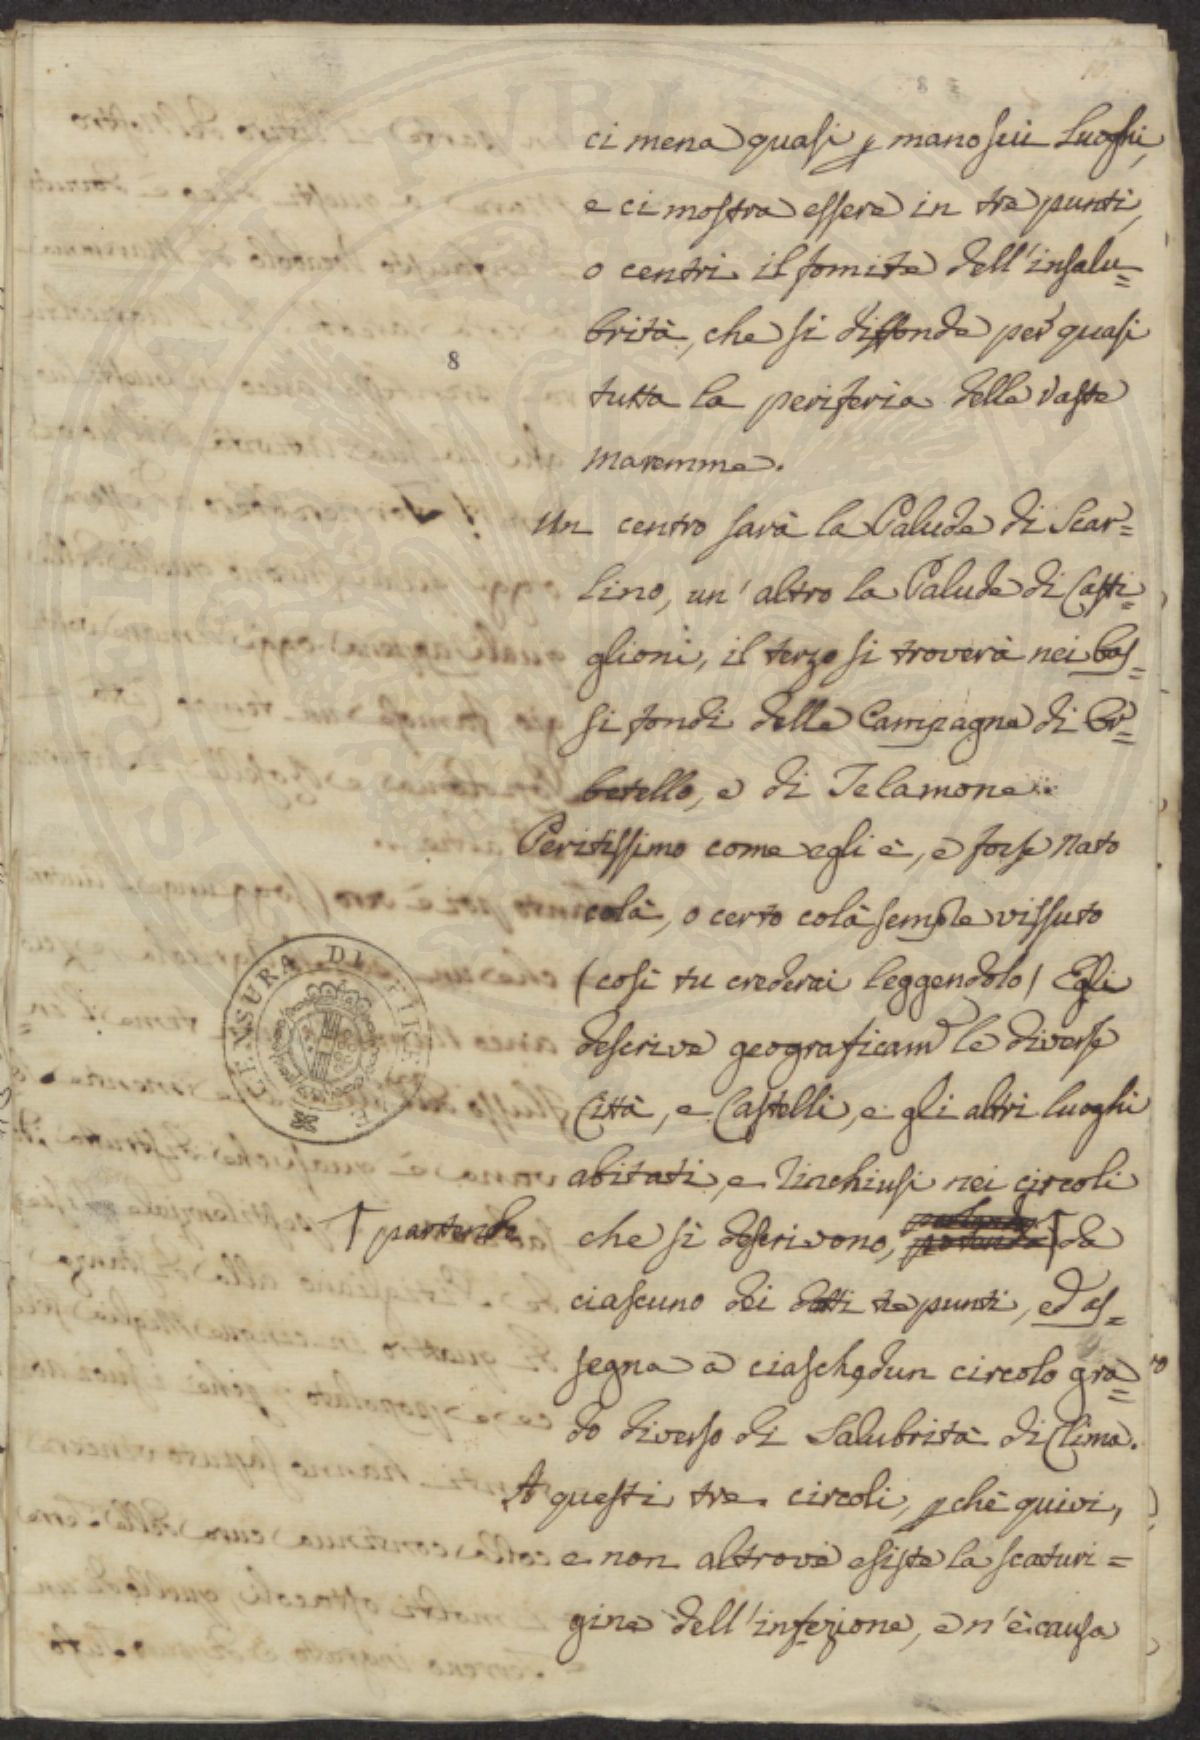 ci mena quasi p mano sui Luoghi,
e ci mostra essere in tre punti,
o centri il fomite dell'insalu=
brità, che si diffonde per quasi
8
tutta la periferia delle vaste
maremme.
Un centro sarà la Palude di Scar=
lino, un'altro la Palude di Casti=
glioni, il terzo si troverà nei bas=
si fondi delle Campagne di Or=
betello, e di Telamone.
Peritissimo come egli è, e forse nato
colà, o certo colà sempre vissuto
(così tu crederai leggendolo) Egli
descrive geograficam.e le diverse
Città, e Castelli, e gli altri luoghi
abitati, e rinchiusi nei circoli
partendo
che si descrivono, da
ciascuno dei detti tre punti, ed as=
segna a ciaschedun circolo gra=
do diverso di Salubrità di Clima.
A questi tre circoli, pchè quivi,
e non altrove esiste la scaturi=
gine dell'infezione, e n'è causa
CENSURA DI FIRENZE